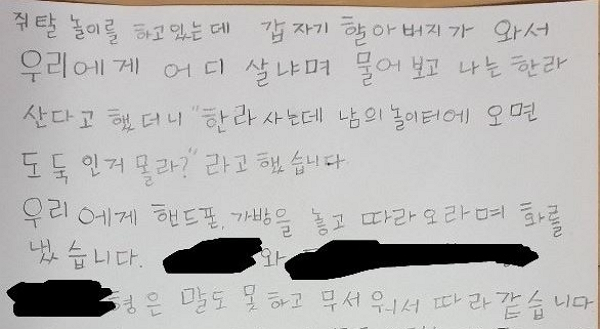 쥐탈 놀이를 하고있는데 갑자기 할아버지가 와서
우리에게 어디 살냐며 물어보고 나는 한라
산다고 했더니 "한라사는데 남의놀이터에 오면
도둑인거 몰라?" 라고했습니다
우리에게 핸드폰, 가방을 놓고 따라오라며 화를
냈습니다. 와
형은 말도 못하고 무서워서 따라갔습니다